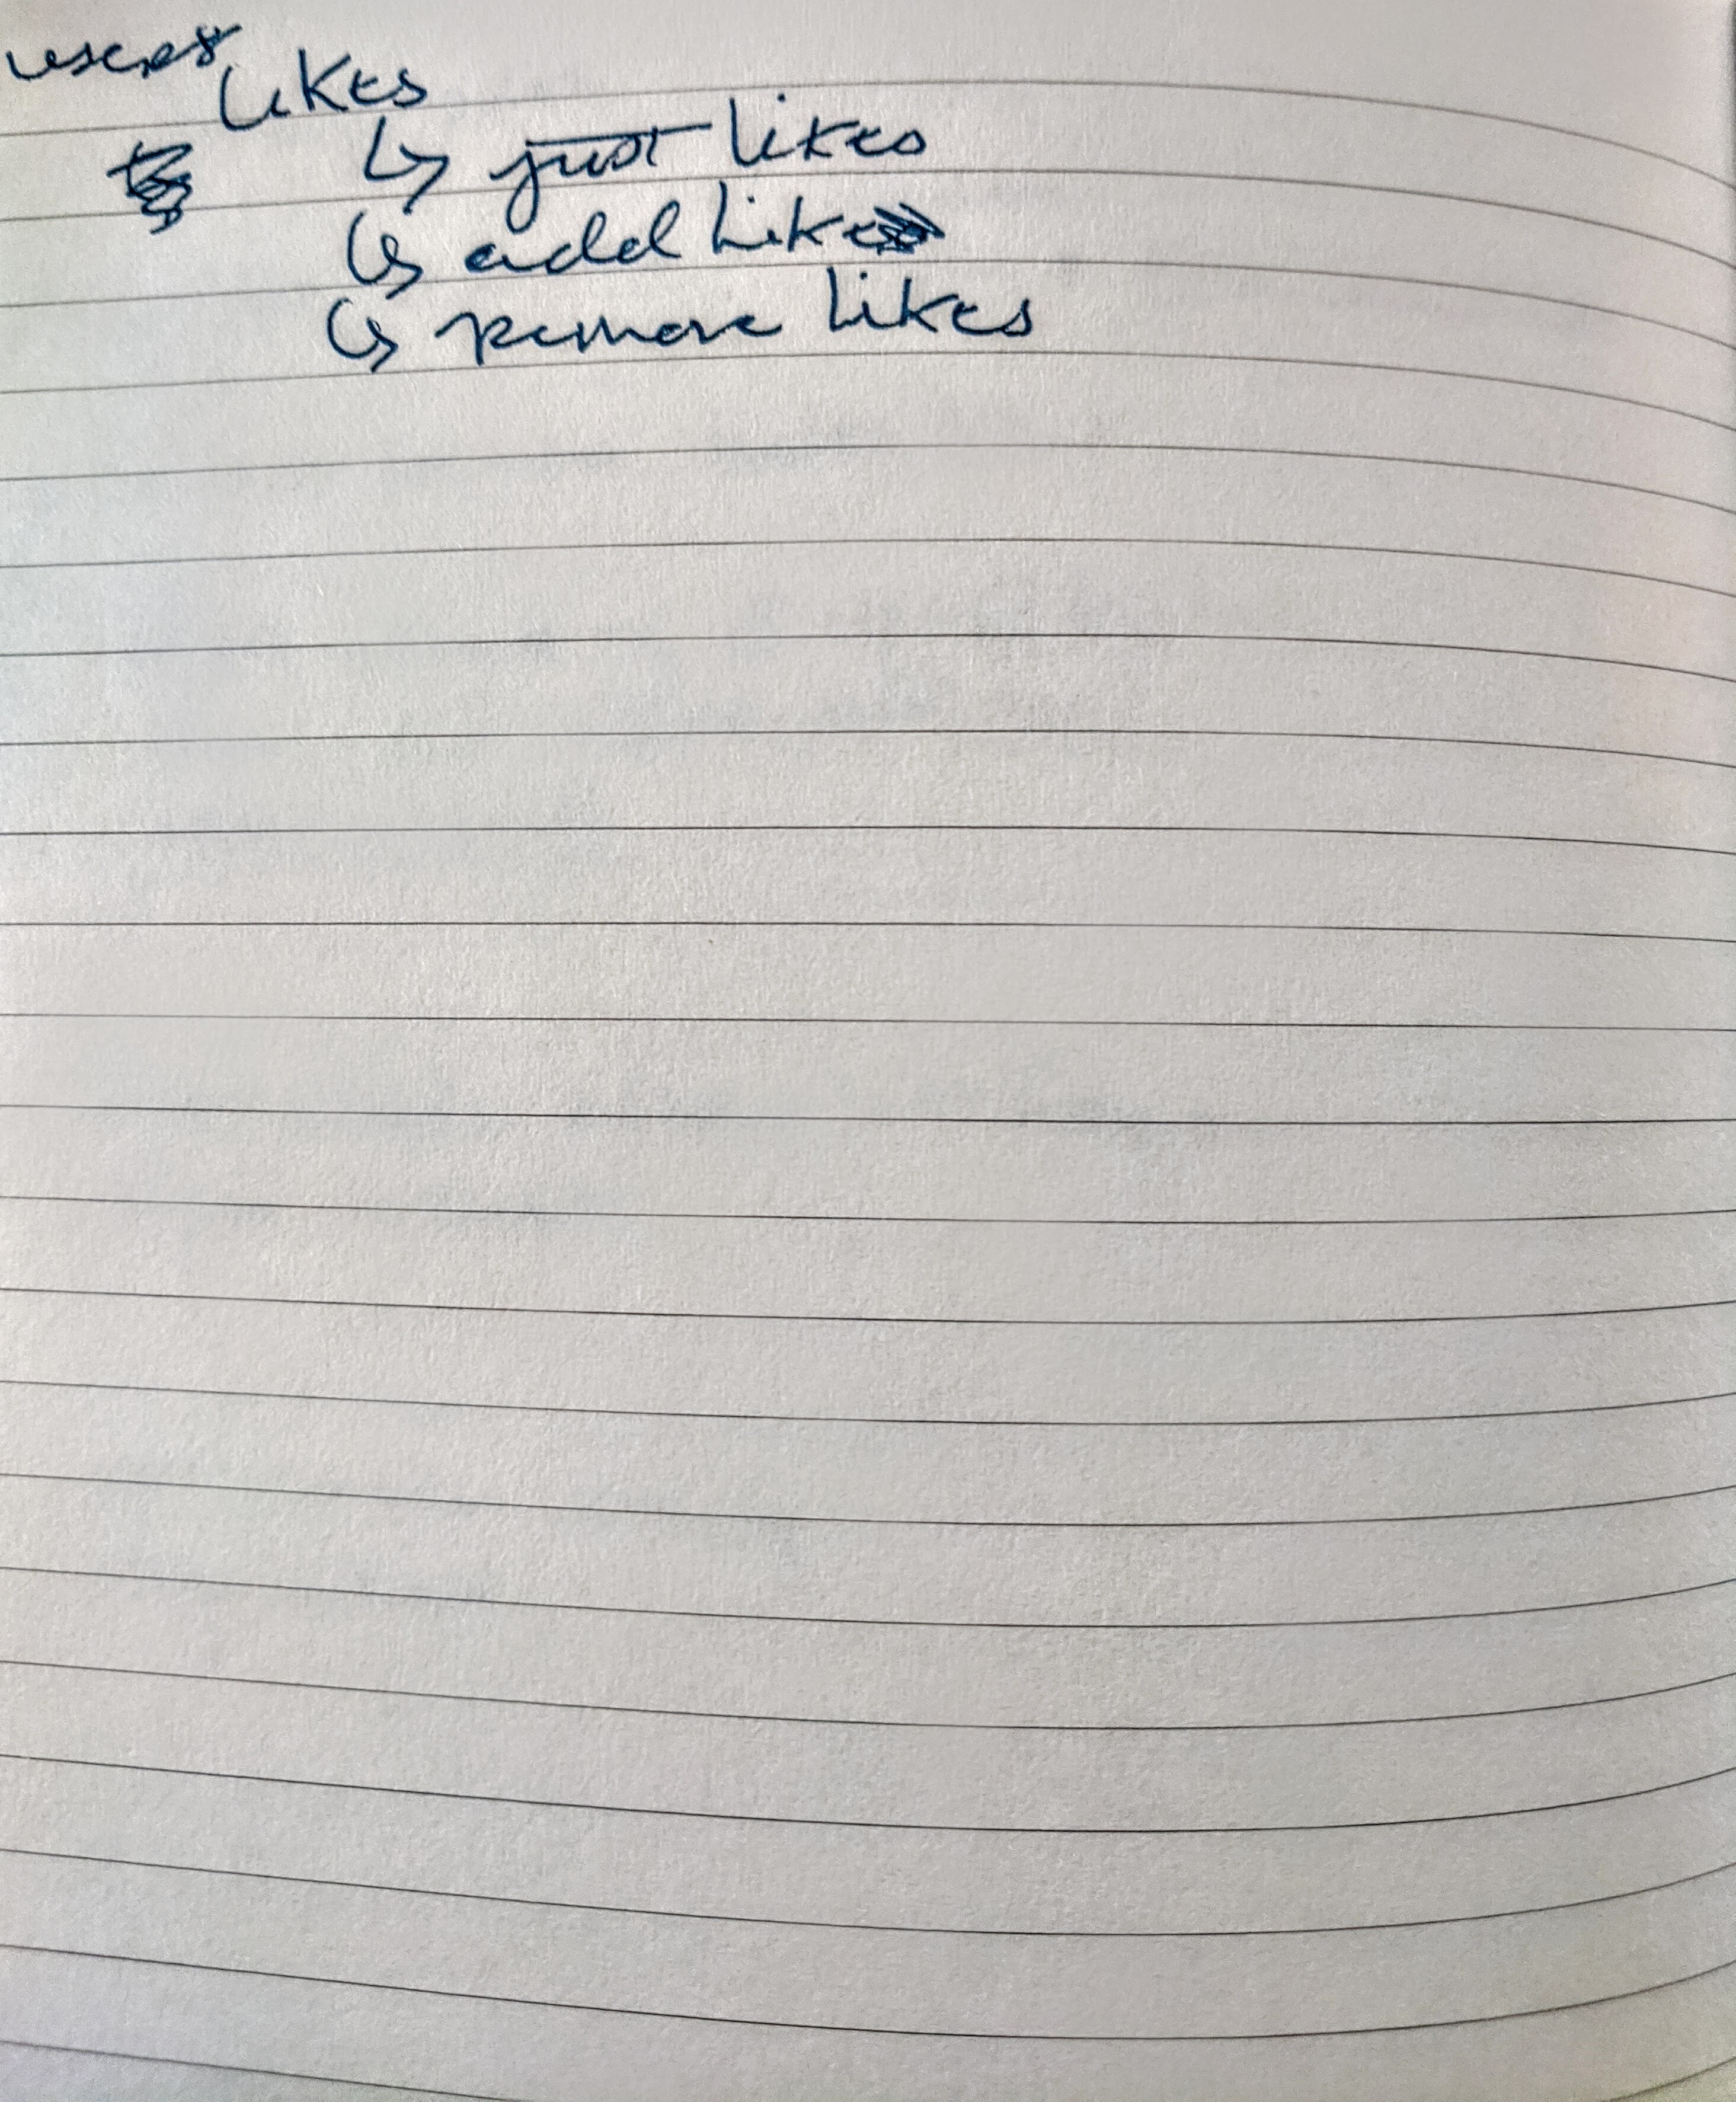 users
Likes
↳ just likes
↳ add Like
↳ remove likes